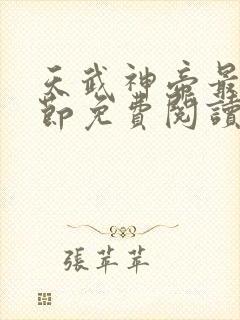 天武神帝最
節免費閱讀
張苹苹